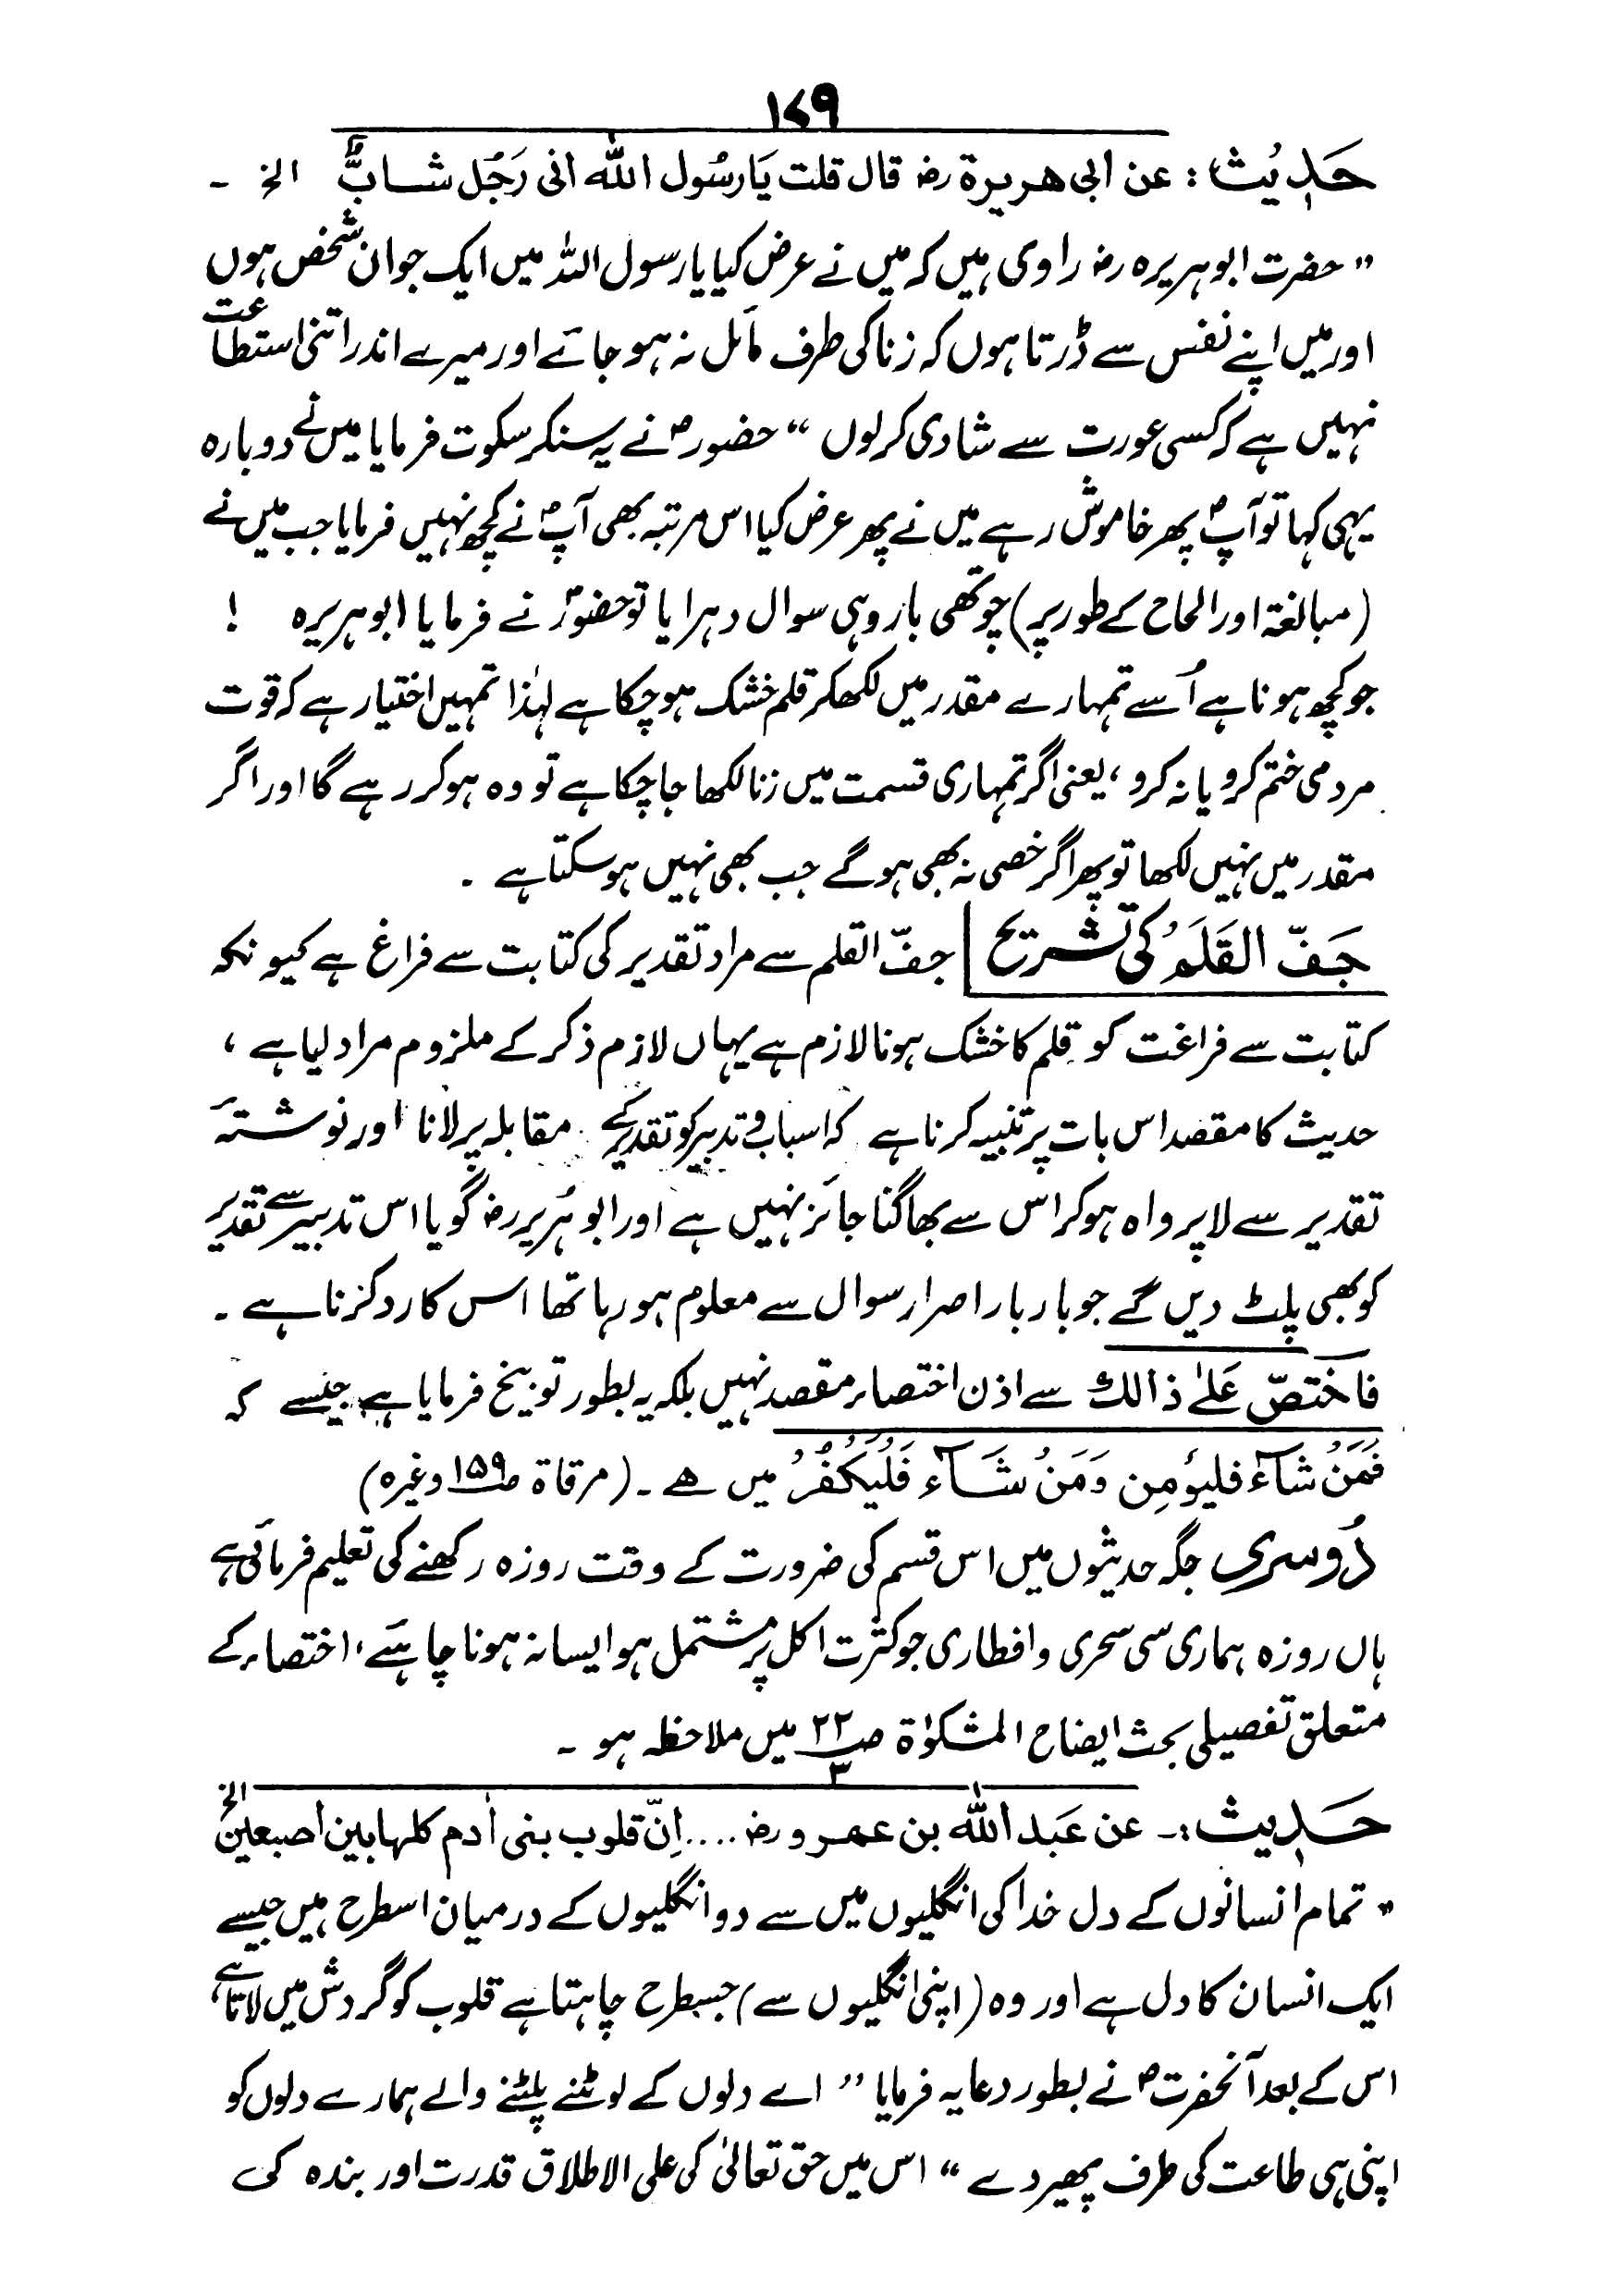 ۱۷۹
حَدِیْث: عن ابی ھریرۃ رضـ قال قلت یَارسُول اللّٰہ انی رَجُل شابٌّ الخ ۔
" حضرت ابوہریرہ رضـ راوی ہیں کہ میں نے عرض کیا یا رسول اللہ میں ایک جوان شخص ہوں
اور میں اپنے نفس سے ڈرتا ہوں کہ زنا کی طرف مائل نہ ہو جائے اور میرے اندر اتنی استطاعت
نہیں ہے کہ کسی عورت سے شادی کرلوں " حضورؐ نے یہ سنکر سکوت فرمایا میں نے دوبارہ
یہی کہا تو آپؐ پھر خاموش رہے میں نے پھر عرض کیا اس مرتبہ بھی آپؐ نے کچھ نہیں فرمایا جب میں نے
(مبالغۃ اور الحاح کے طور پر) چوتھی بار وہی سوال دہرایا تو حضورؐ نے فرمایا ابوہریرہ !
جو کچھ ہونا ہے اُسے تمہارے مقدر میں لکھکر قلم خشک ہو چکا ہے لہٰذا تمہیں اختیار ہے کہ قوت
مردمی ختم کرو یا نہ کرو ، یعنی اگر تمہاری قسمت میں زنا لکھا جاچکا ہے تو وہ ہوکر رہے گا اور اگر
مقدر میں نہیں لکھا تو پھر اگر خصی نہ بھی ہوگے جب بھی نہیں ہو سکتا ہے ۔
جَفّ القَلَمُ کی تشریح | جفّ القلم سے مراد تقدیر کی کتابت سے فراغ ہے کیونکہ
کتابت سے فراغت کو قلم کا خشک ہونا لازم ہے یہاں لازم ذکر کے ملزوم مراد لیا ہے ،
حدیث کا مقصد اس بات پر تنبیہ کرنا ہے کہ اسباب و تدبیر کو تقدیر کے مقابلہ پر لانا اور نوشتۂ
تقدیر سے لاپرواہ ہوکر اس سے بھاگنا جائز نہیں ہے اور ابوہُریرہ رضـ گویا اس تدبیر سے تقدیر
کو بھی پلٹ دیں گے جو بار بار اصرار سوال سے معلوم ہو رہا تھا اس کا رد کرنا ہے ۔
فاختصّ عَلیٰ ذالك سے اذن اختصاء مقصد نہیں بلکہ یہ بطور توبیخ فرمایا ہے جیسے کہ
فَمَنْ شَآءَ فلیؤمِن وَمَنْ شَآءَ فَلْیَکْفُرْ میں ھے ۔ (مرقاۃ صـ۱۵۹ وغیرہ)
دُوسری جگہ حدیثوں میں اس قسم کی ضرورت کے وقت روزہ رکھنے کی تعلیم فرمائی ہے
ہاں روزہ ہماری سی سحری و افطاری جو کثرت اکل پر مشتمل ہو ایسا نہ ہونا چاہئے ، اختصاء کے
متعلق تفصیلی بحث ایضاح المشکوٰۃ صـ۲۲ ۳ میں ملاحظہ ہو ۔
حَدِیث :۔ عن عَبد اللّٰہ بن عمرو رضـ .... اِنّ قلوب بنی اٰدم کلہا بین اصبعین الخ
" تمام انسانوں کے دل خدا کی انگلیوں میں سے دو انگلیوں کے درمیان اسطرح ہیں جیسے
ایک انسان کا دل ہے اور وہ (اپنی انگلیوں سے) جسطرح چاہتا ہے قلوب کو گردش میں لاتا ہے ،
اس کے بعد آنحضرتؐ نے بطور دعا یہ فرمایا " اے دلوں کے لوٹنے پلٹنے والے ہمارے دلوں کو
اپنی ہی طاعت کی طرف پھیر دے " اس میں حق تعالیٰ کی علی الاطلاق قدرت اور بندہ کی